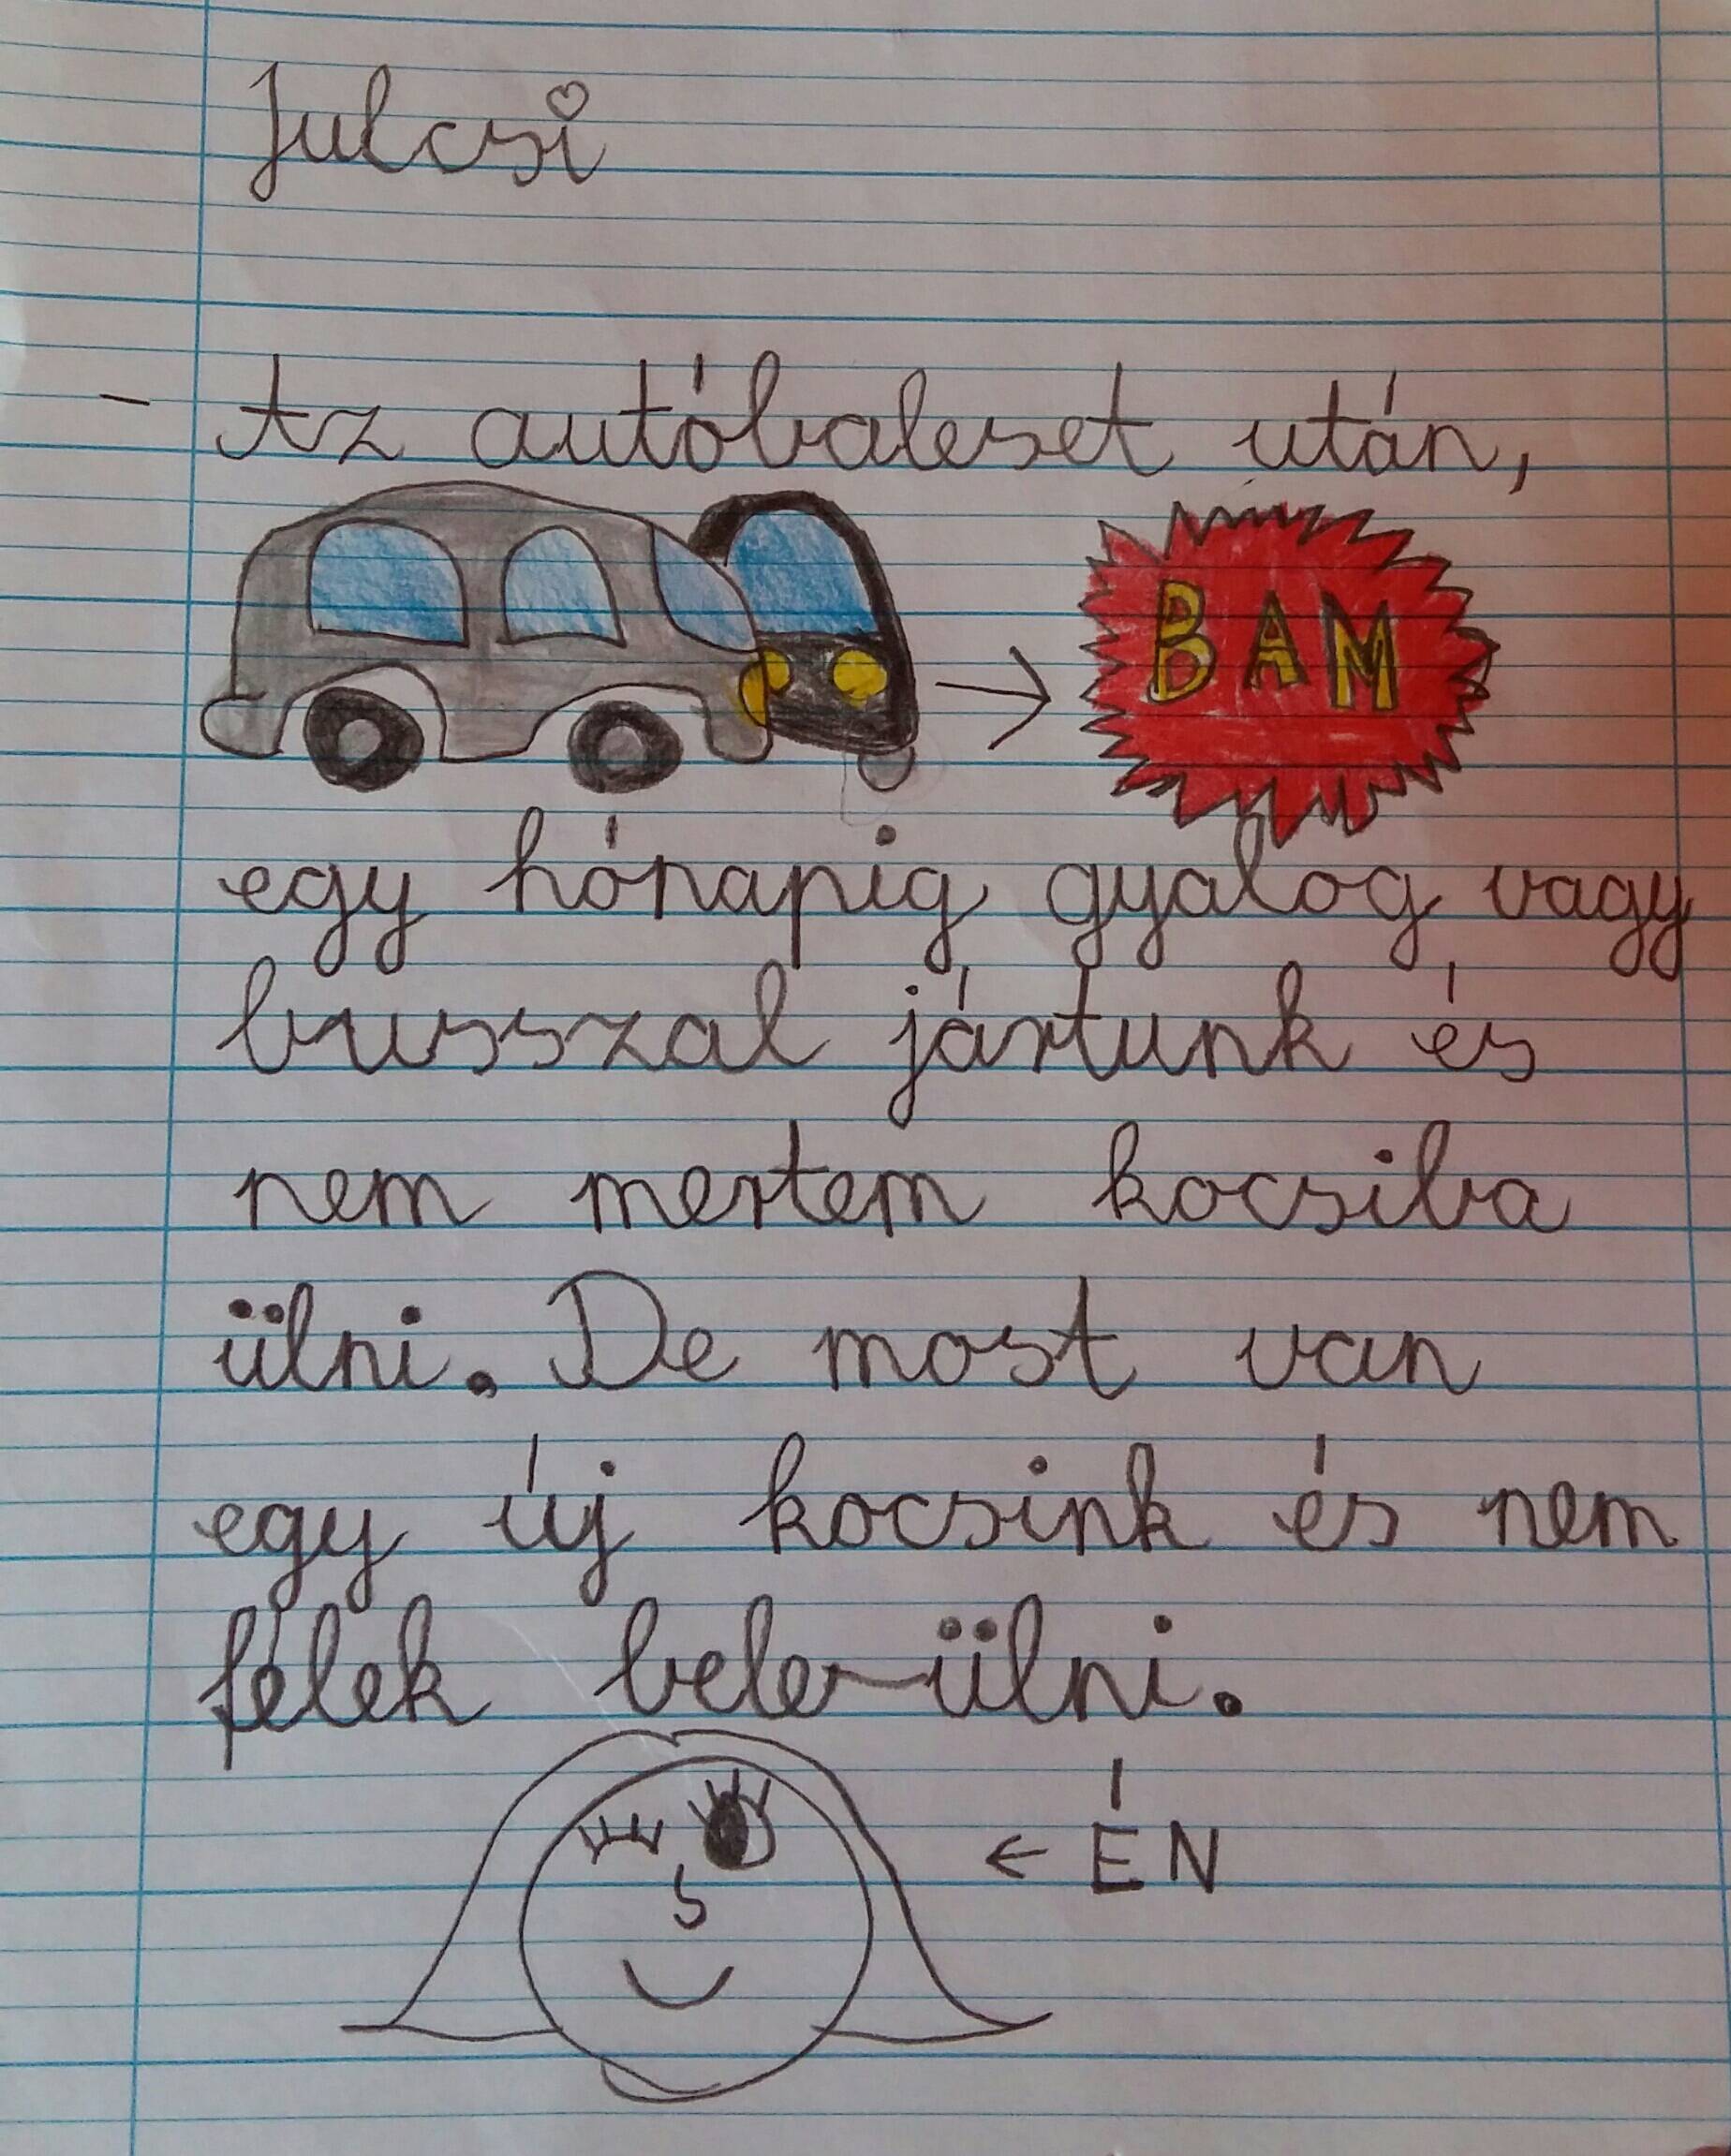 Julcsi
- Az autóbaleset után,
BAM
egy hónapig gyalog vagy
busszal jártunk és
nem mertem kocsiba
ülni. De most van
egy új kocsink és nem
félek bele-ülni.
← ÉN